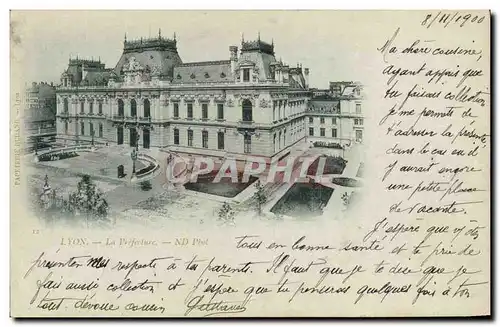 8/11/1900
Ma chère cousine,
Ayant appris que
tu faisais collection
je me permets de
t'adresser la présente
dans le cas où il y
aurait encore
une petite place
de vacante.
J'espère que vous êtes
tous en bonne santé et te prie de
présenter mes respects à tes parents. Il faut que je te dise que je
fais aussi collection et j'espère que tu penseras quelques fois à ton
tout dévoué cousin
11 LYON. — La Préfecture. — ND Phot
CPARAMA